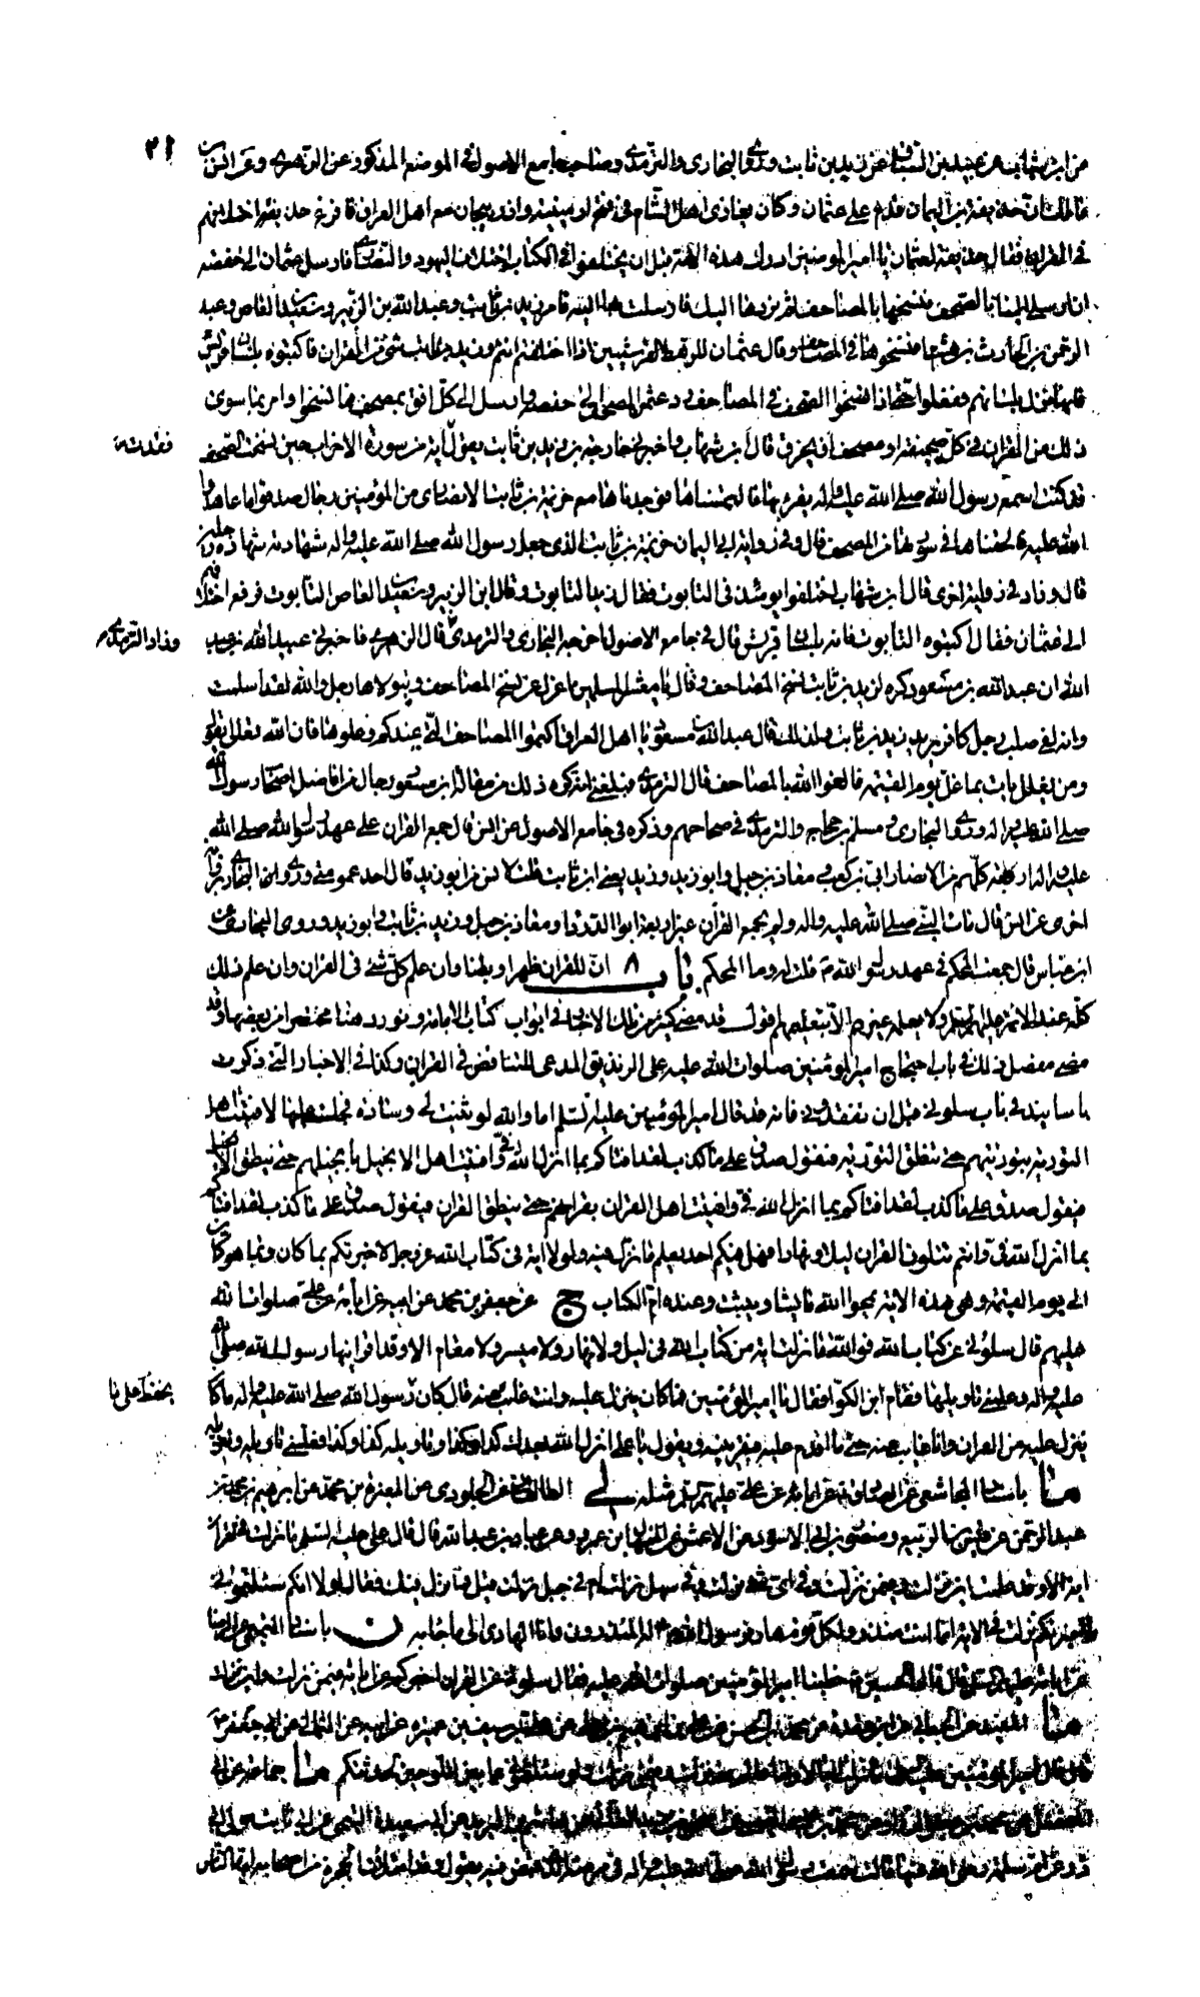 ٢١
من ابن شهاب عن عبيد بن السباق عن زيد بن ثابت وروى البخارى والترمذى وصاحب جامع الاصول فى الموضع المذكور عن الزهرى وعن انس بن
مالك ان حذيفة بن اليمان قدم على عثمان وكان يغازى اهل الشام فى فتح ارمينية واذربيجان مع اهل العراق فافزع حذيفة اختلافهم
فى القران فقال حذيفة لعثمان يا امير المومنين ادرك هذه الامة قبل ان يختلفوا فى الكتاب اختلاف اليهود والنصارى فارسل عثمان الى حفصة
ان ارسلى الينا بالصحف ننسخها بالمصاحف ثم نردها اليك فارسلت بها اليه فامر زيد بن ثابت وعبد الله بن الزبير وسعيد بن العاص وعبد
الرحمن بن الحارث بن هشام فنسخوها فى المصاحف وقال عثمان للرهط القرشيين اذا اختلفتم انتم وزيد بن ثابت فى شئ من القران فاكتبوه بلسان قريش
فانما نزل بلسانهم ففعلوا حتى اذا نسخوا الصحف فى المصاحف رد عثمان الصحف الى حفصة وارسل الى كل افق بمصحف مما نسخوا وامر بما سوى
ذلك من القران فى كل صحيفة او مصحف ان يحرق قال ابن شهاب واخبرنى خارجة بن زيد بن ثابت يقول اية من سورة الاحزاب حين نسخت الصحف
فقدت
قد كنت اسمع رسول الله صلى الله عليه واله يقرء بها فالتمسناها فوجدناها مع خزيمة بن ثابت الانصارى من المؤمنين رجال صدقوا ما عاهدوا
الله عليه فالحقناها فى سورتها من المصحف قال وفى رواية ابى اليمان خزيمة بن ثابت الذى جعل رسول الله صلى الله عليه واله شهادته شهادة رجلين
قال وزاد فى رواية اخرى قال ابن شهاب اختلفوا يومئذ فى التابوت فقال زيد التابوه وقال ابن الزبير وسعيد بن العاص التابوت فرفع اختلافهم
الى عثمان فقال اكتبوه التابوت فانه بلسان قريش قال فى جامع الاصول اخرجه البخارى والترمذى قال الزهرى فاخبرنى عبيد الله بن عبد
وزاد الترمذى
الله ان عبد الله بن مسعود كره لزيد بن ثابت نسخ المصاحف وقال يا معشر المسلمين اعزل عن نسخ المصاحف ويتولاها رجل والله لقد اسلمت
وانه لفى صلب رجل كافر يريد زيد بن ثابت ولذلك قال عبد الله بن مسعود يا اهل العراق اكتموا المصاحف التى عندكم وغلوها فان الله تعالى يقول
ومن يغلل يات بما غل يوم القيمة فالقوا الله بالمصاحف قال الترمذى فبلغنى انه كره ذلك من مقالة ابن مسعود رجال من افاضل اصحاب رسول الله
صلى الله عليه واله وروى البخارى ومسلم بن حجاج والترمذى فى صحاحهم وذكره فى جامع الاصول عن انس قال جمع القران على عهد رسول الله صلى الله
عليه واله اربعة كلهم من الانصار ابى بن كعب ومعاذ بن جبل وابو زيد وزيد يعنى ابن ثابت قلت لانس من ابو زيد قال احد عمومتى وروى البخارى برواية
اخرى عن انس قال مات النبى صلى الله عليه واله ولم يجمع القرآن غير اربعة ابو الدرداء ومعاذ بن جبل وزيد بن ثابت وابو زيد وروى البخارى عن
ابن عباس قال جمعت المحكم فى عهد رسول الله ص قلت له وما المحكم باب ٨ ان للقران ظهرا وبطنا وان علم كل شئ فى القران وان علم ذلك
كله عند الائمة عليهم السلم ولا يعلمه غيرهم الا بتعليمهم اقول قد مضى كثير من تلك الاخبار فى ابواب كتاب الامامة ونورد هنا مختصرا من بعضها وقد
مضى مفصل ذلك فى باب احتجاج امير المومنين صلوات الله عليه على الزنديق المدعى للتناقض فى القران وكذا فى الاخبار التى ذكرت
باسانيد فى باب سلونى قبل ان تفقدونى فانه قد قال امير المؤمنين عليه السلم اما والله لو ثنيت لى وسادة فجلست عليها لافتيت اهل
التورية بتوريتهم حتى تنطق التورية فتقول صدق على ما كذب لقد افتاكم بما انزل الله فى وافتيت اهل الانجيل بانجيلهم حتى ينطق الانجيل
فيقول صدق على ما كذب لقد افتاكم بما انزل الله فى وافتيت اهل القران بقرانهم حتى ينطق القران فيقول صدق على ما كذب لقد افتاكم
بما انزل الله فى وانتم تتلون القران ليلا ونهارا فهل فيكم احد يعلم ما نزل فيه ولولا اية فى كتاب الله عز وجل لاخبرتكم بما كان وبما هو كائن
الى يوم القيمة وهى هذه الاية يمحوا الله ما يشاء ويثبت وعنده ام الكتاب ج عن جعفر بن محمد عن ابيه عن ابائه عن على صلوات الله
عليهم قال سلونى عن كتاب الله فوالله ما نزلت اية من كتاب الله فى ليل ولا نهار ولا مسير ولا مقام الا وقد اقرانيها رسول الله صلى الله
عليه واله وعلمنى تاويلها فقام ابن الكوا فقال يا امير المؤمنين فما كان ينزل عليه وانت غائب عنه قال كان رسول الله صلى الله عليه واله ما كان
يحفظ على ما
ينزل عليه من القران وانا غايب عنه حتى اقدم عليه فيقرئنيه ويقول يا على انزل الله بعدك كذا وكذا وتاويله كذا وكذا فعلمنى تاويله وتنزيله
ما باسناد المجاشعى عن الصادق عن ابائه عن على عليهم السلم مثله لى الطالقانى عن الجلودى عن المغيرة بن محمد عن ابرهيم بن محمد بن
عبد الرحمن عن قيس بن الربيع ومنصور بن ابى الاسود عن الاعمش عن المنهال بن عمرو وعن عباد بن عبد الله قال قال على عليه السلم ما نزلت من القران
اية الا وقد علمت اين نزلت وفيمن نزلت وفى اى شئ نزلت وفى سهل نزلت ام فى جبل نزلت قيل فما نزل فيك فقال لولا انكم سئلتمونى
ما اخبرتكم نزلت فى الاية انما انت منذر ولكل قوم هاد فرسول الله ص المنذر وانا الهادى الى ما جاء به ن باسناد التميمى عن الرضا
عن ابائه عليهم السلم قال قال الحسين خطبنا امير المؤمنين صلوات الله عليه فقال سلونى عن القران اخبركم عن اياته فيمن نزلت واين نزلت
ما المفيد عن الجعابى عن ابن عقدة عن
ما جماعة عن ابى